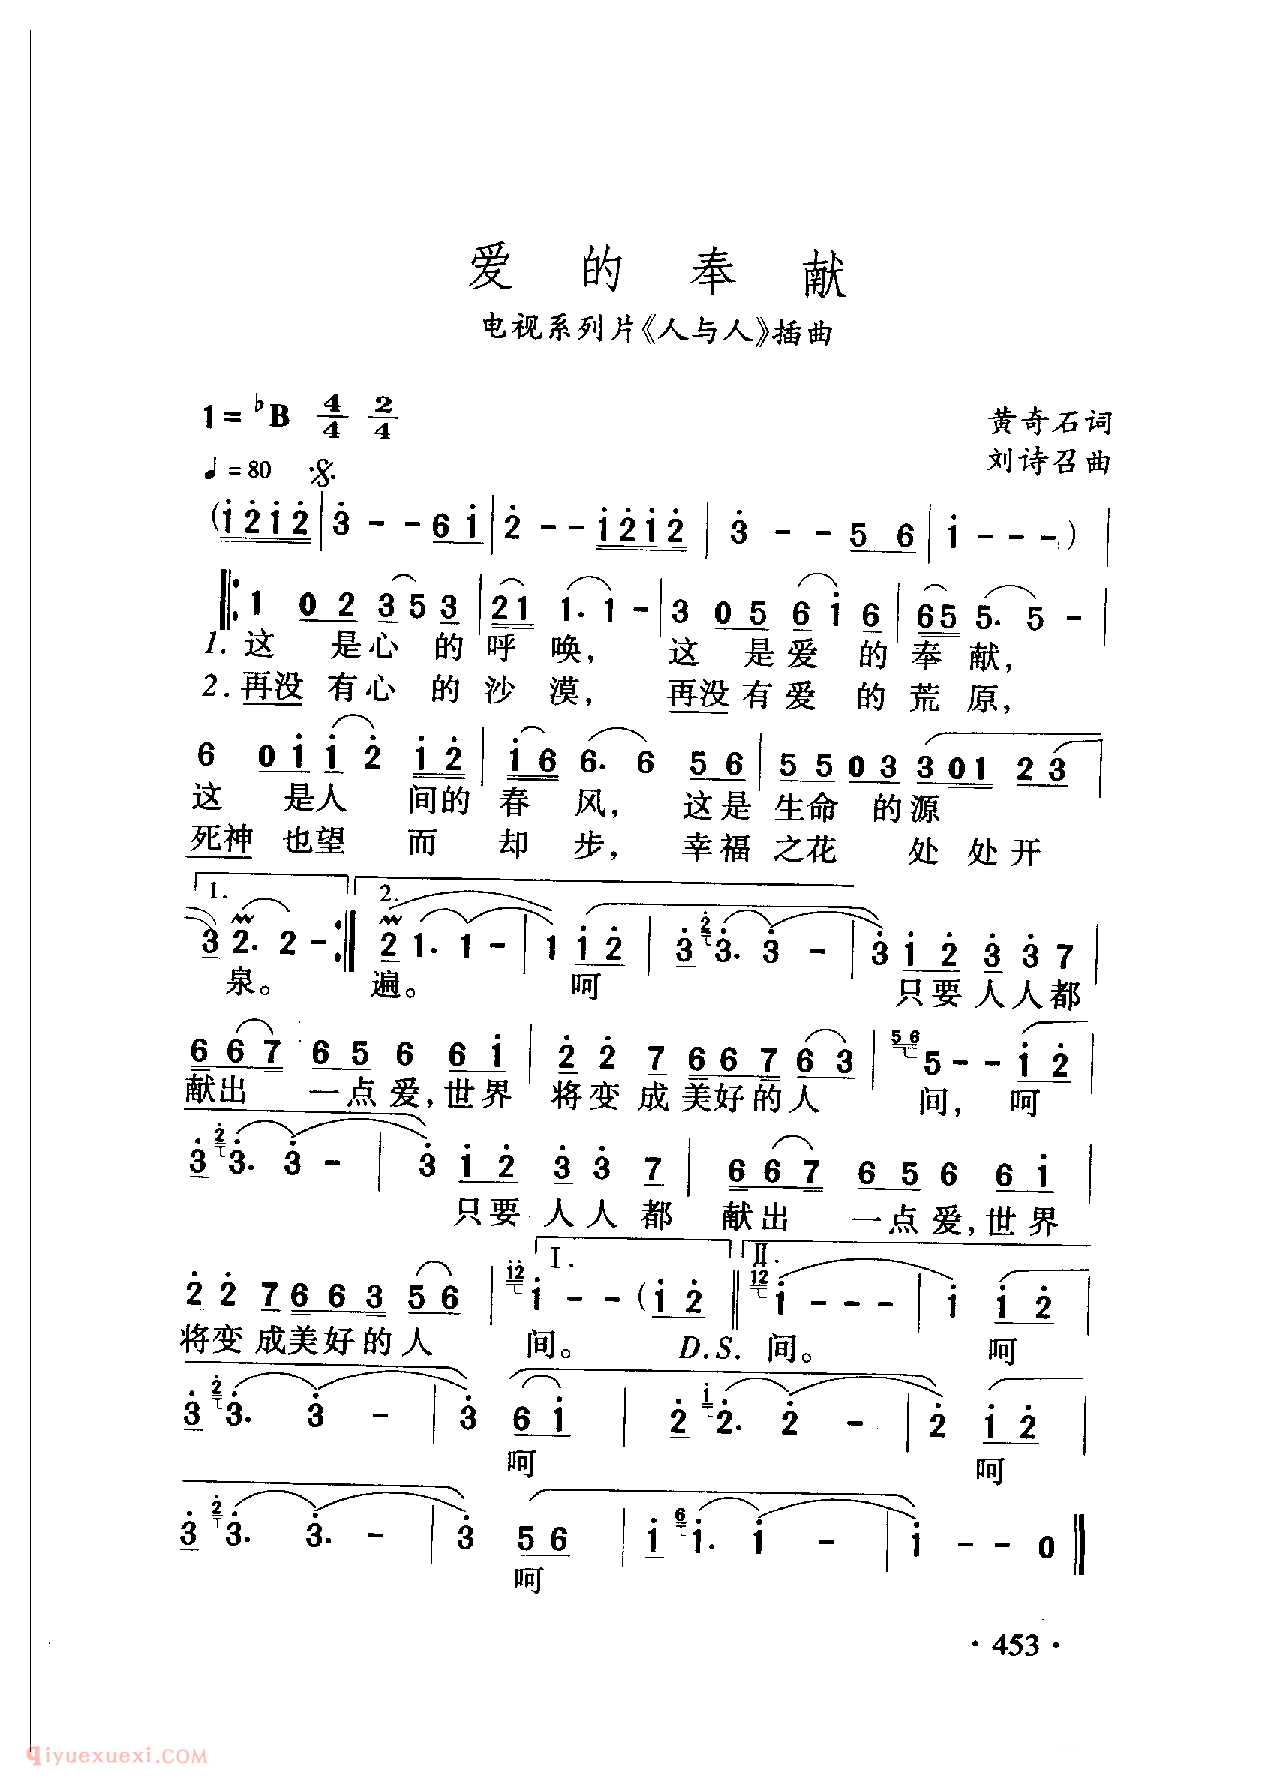 爱的奉献
电视系列片《人与人》插曲
1=♭B 4/4 2/4
黄奇石词
♩=80
刘诗召曲
(i̇ 2̇ i̇ 2̇ | 3̇ - - 6 i̇ | 2̇ - - i̇ 2̇ i̇ 2̇ | 3̇ - - 5 6 | i̇ - - -)
1 0 2 3 5 3 | 2 1 1. 1 - | 3 0 5 6 i̇ 6 | 6 5 5. 5 - |
1.这 是心 的 呼 唤， 这 是爱 的 奉 献，
2.再没 有心 的 沙 漠， 再没有爱 的 荒 原，
6 0 i̇ i̇ 2̇ i̇ 2̇ | i̇ 6 6. 6 5 6 | 5 5 0 3 3 0 1 2 3 |
这 是人 间的 春 风， 这是 生命 的源
死神 也望 而 却 步， 幸福 之花 处 处 开
1. 2.
3 2. 2 - :| 2 1. 1 - | 1 i̇ 2̇ | 3̇ 2̇ 3̇. 3̇ - | 3̇ i̇ 2̇ 3̇ 3̇ 7 |
泉。 遍。 呵 只要 人人都
6 6 7 6 5 6 6 i̇ | 2̇ 2̇ 7 6 6 7 6 3 | 5 6 5 - - i̇ 2̇ |
献出 一点爱，世界 将变 成美好的人 间， 呵
3̇ 2̇ 3̇. 3̇ - | 3̇ i̇ 2̇ 3̇ 3̇ 7 | 6 6 7 6 5 6 6 i̇ |
只要 人人 都 献出 一点爱，世界
I. II.
2̇ 2̇ 7 6 6 3 5 6 | i̇ 2̇ i̇ - - (i̇ 2̇ || i̇ 2̇ i̇ - - - | i̇ i̇ 2̇ |
将变 成美好的人 间。 D.S. 间。 呵
3̇ 2̇ 3̇. 3̇ - | 3̇ 6 i̇ | 2̇ i̇ 2̇. 2̇ - | 2̇ i̇ 2̇ |
呵 呵
3̇ 2̇ 3̇. 3̇ - | 3̇ 5 6 | i̇ 6 i̇. i̇ - | i̇ - - 0 ||
呵
·453·
qiyuexuexi.COM